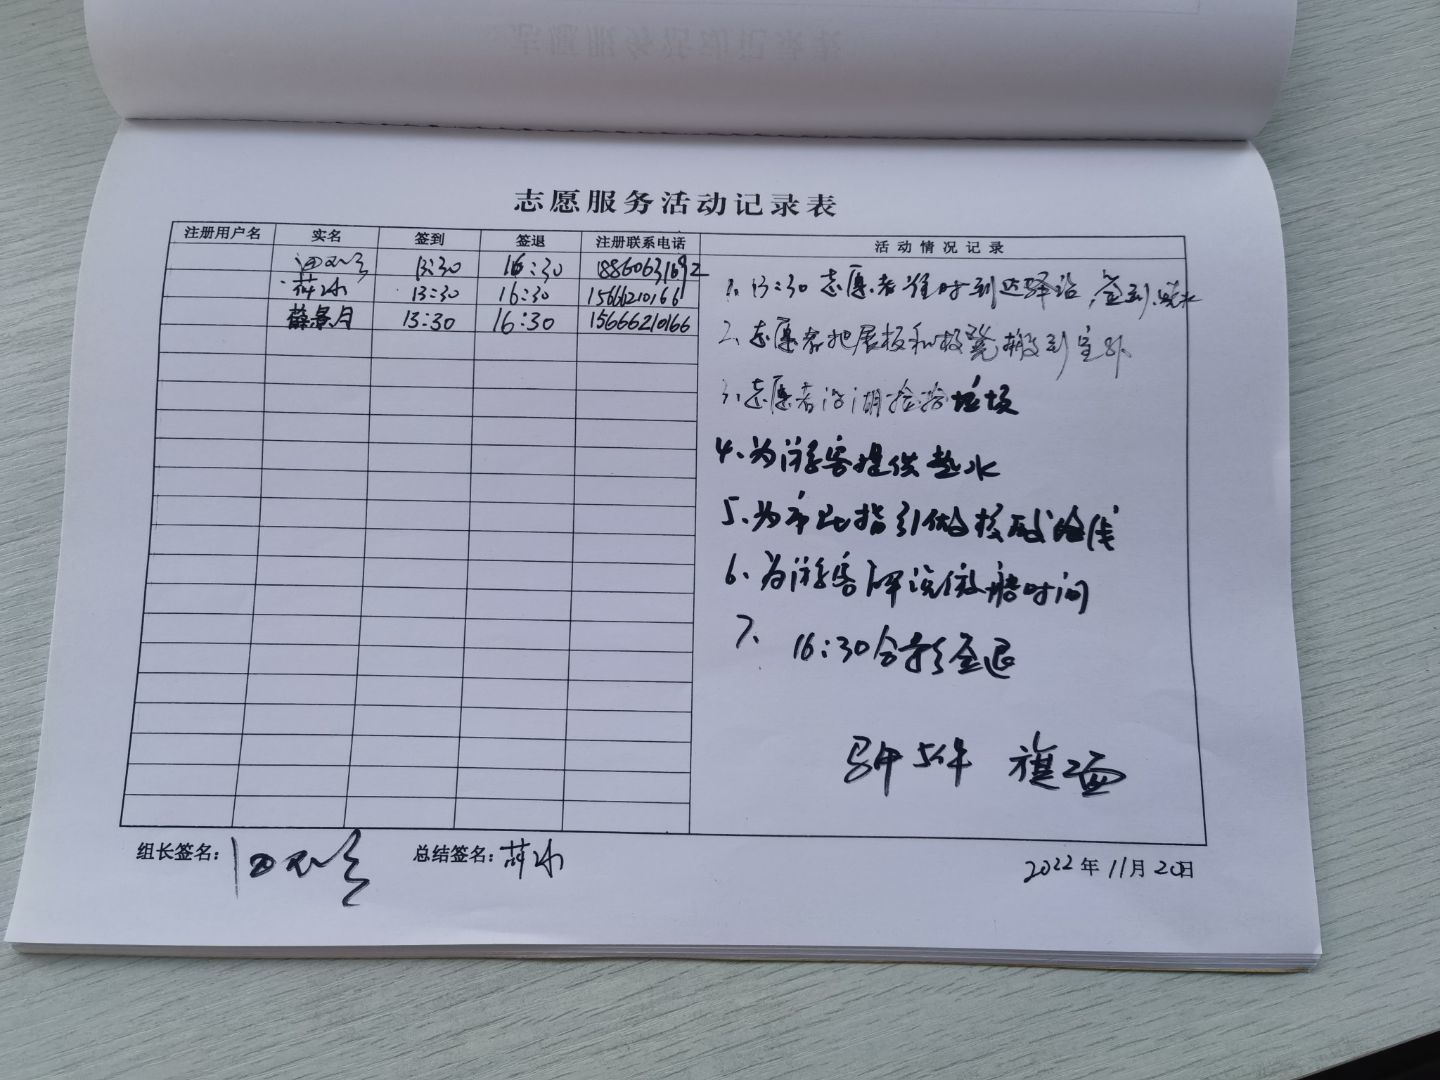 志愿服务活动记录表
注册用户名 实名 签到 签退 注册联系电话 活动情况记录
13:30 16:30 18860631692
13:30 16:30 1566621016
薛景月 13:30 16:30 15666210166
1、13:30志愿者准时到达驿站,签到、烧水
2、志愿者把展板和板凳搬到室外
3、志愿者沿湖捡拾垃圾
4、为游客提供热水
5、为市民指引做核酸路线
6、为游客解说做船时间
7、16:30合影签退
马甲5件 旗2面
组长签名:
总结签名:
2022年11月20日